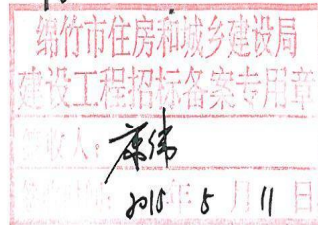 绵竹市住房和城乡建设局
建设工程招标备案专用章
签收人：
2015年5月11日